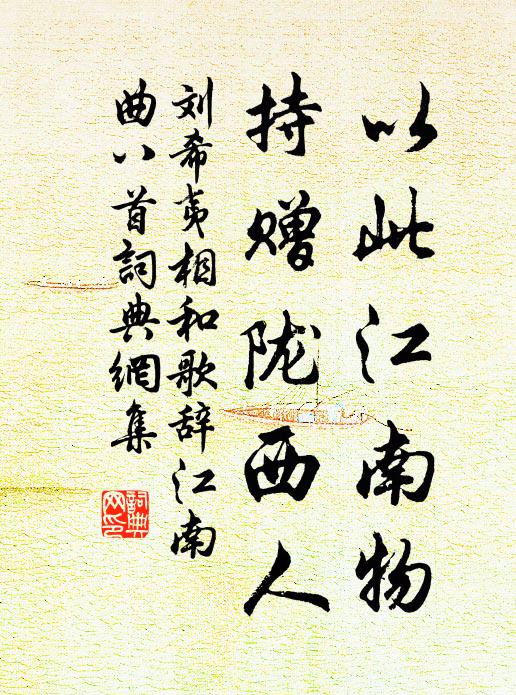 以此江南物
持赠陇西人
刘希夷相和歌辞江南
曲八首詞典網集
詞典
网印